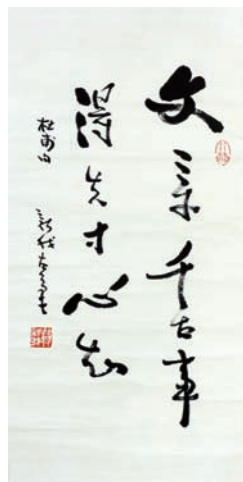 文章千古事
得失寸心知
杜甫句